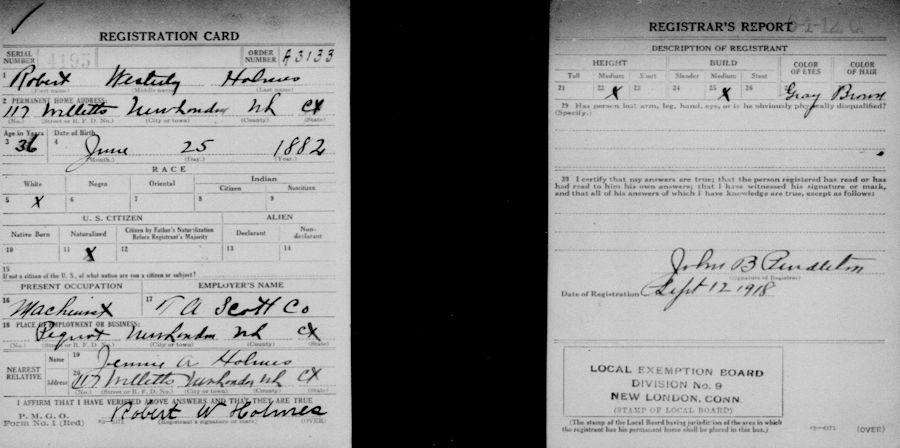 REGISTRATION CARD
SERIAL NUMBER 4195 ORDER NUMBER A3133
1 Robert Westerly Holmes
(First name) (Middle name) (Last name)
2 PERMANENT HOME ADDRESS:
117 Willetts New London Nh Ct
(No.) (Street or R. F. D. No.) (City or town) (County) (State)
Age in Years Date of Birth
3 36 4 June 25 1882
(Month.) (Day.) (Year.)
RACE
White Negro Oriental Indian
Citizen Noncitizen
5 X 6 7 8 9
U. S. CITIZEN ALIEN
Native Born Naturalized Citizen by Father's Naturalization Before Registrant's Majority Declarant Non-declarant
10 11 X 12 13 14
15
If not a citizen of the U. S., of what nation are you a citizen or subject?
PRESENT OCCUPATION EMPLOYER'S NAME
16 Machinist 17 T A Scott Co
18 PLACE OF EMPLOYMENT OR BUSINESS:
Pequot New London Nh Ct
(No.) (Street or R. F. D. No.) (City or town) (County) (State)
NEAREST RELATIVE
Name 19 Jennie A Holmes
Address 20 117 Willetts New London Nh Ct
(No.) (Street or R. F. D. No.) (City or town) (County) (State)
I AFFIRM THAT I HAVE VERIFIED ABOVE ANSWERS AND THAT THEY ARE TRUE
P. M. G. O.
Form No. 1 (Red) Robert W Holmes
(Registrant's signature or mark) (OVER)
REGISTRAR'S REPORT
DESCRIPTION OF REGISTRANT
HEIGHT BUILD COLOR OF EYES COLOR OF HAIR
Tall Medium Short Slender Medium Stout
21 22 X 23 24 25 X 26 Gray Brown
29 Has person lost arm, leg, hand, eye, or is he obviously physically disqualified?
(Specify.)
30 I certify that my answers are true; that the person registered has read or has
had read to him his own answers; that I have witnessed his signature or mark,
and that all of his answers of which I have knowledge are true, except as follows:
John B Pendleton
(Signature of Registrar)
Date of Registration Sept 12 1918
LOCAL EXEMPTION BOARD
DIVISION No. 9
NEW LONDON, CONN.
(STAMP OF LOCAL BOARD)
(The stamp of the Local Board having jurisdiction of the area in which
the registrant has his permanent home shall be placed in this box.)
(OVER)